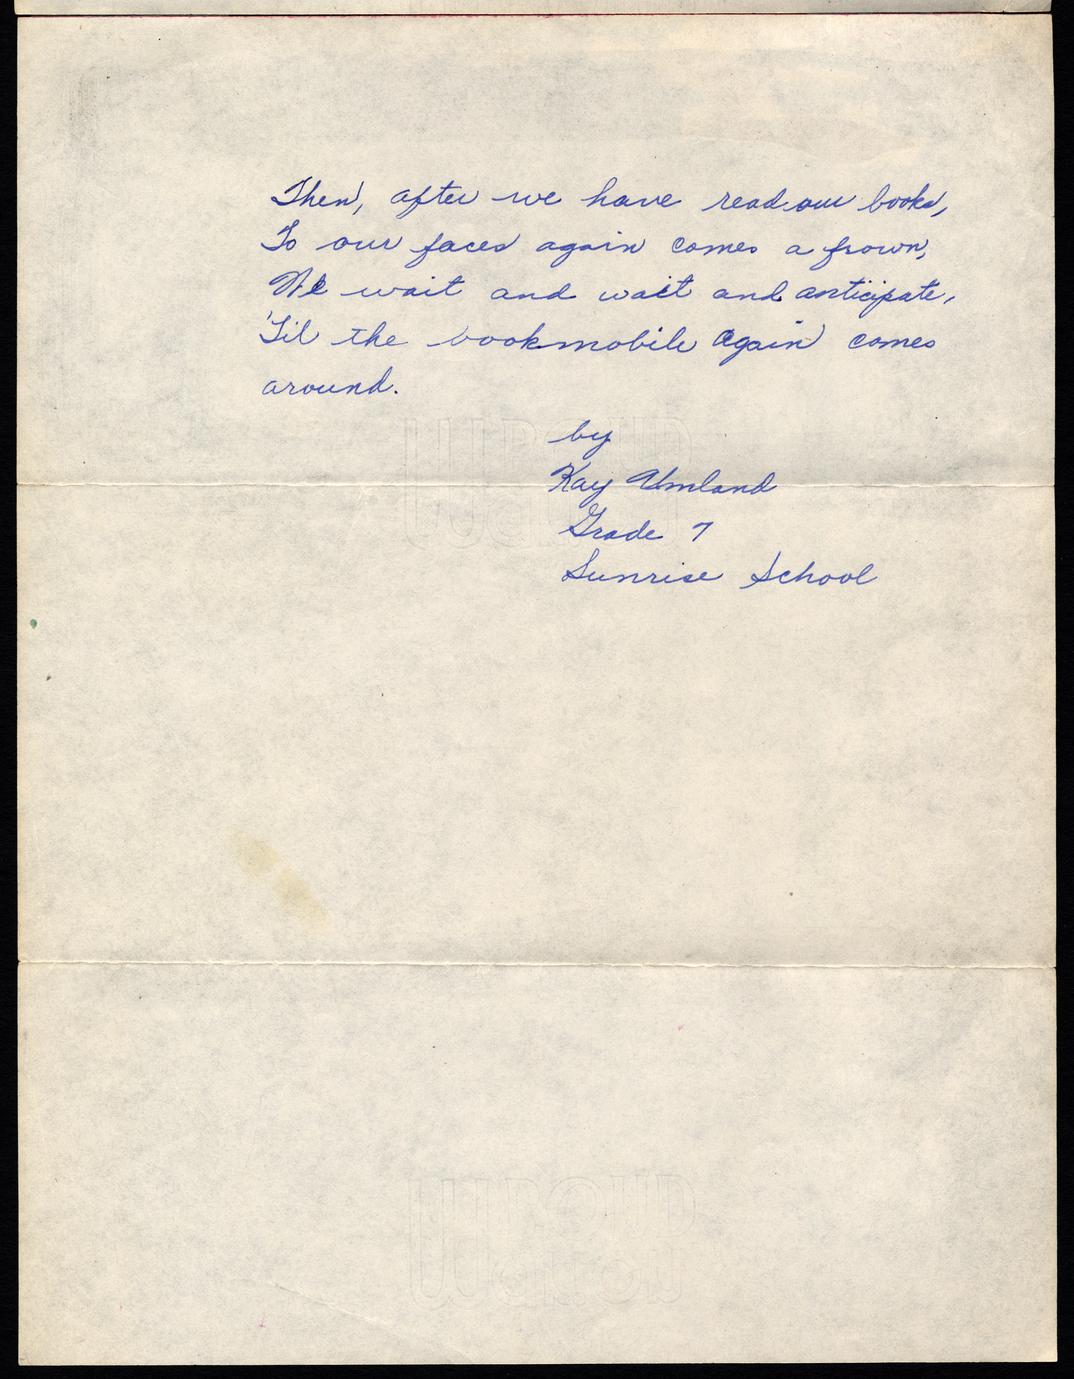 Then, after we have read our books,
To our faces again comes a frown,
We wait and wait and anticipate,
'Til the bookmobile again comes
around.
by
Kay Umland
Grade 7
Sunrise School